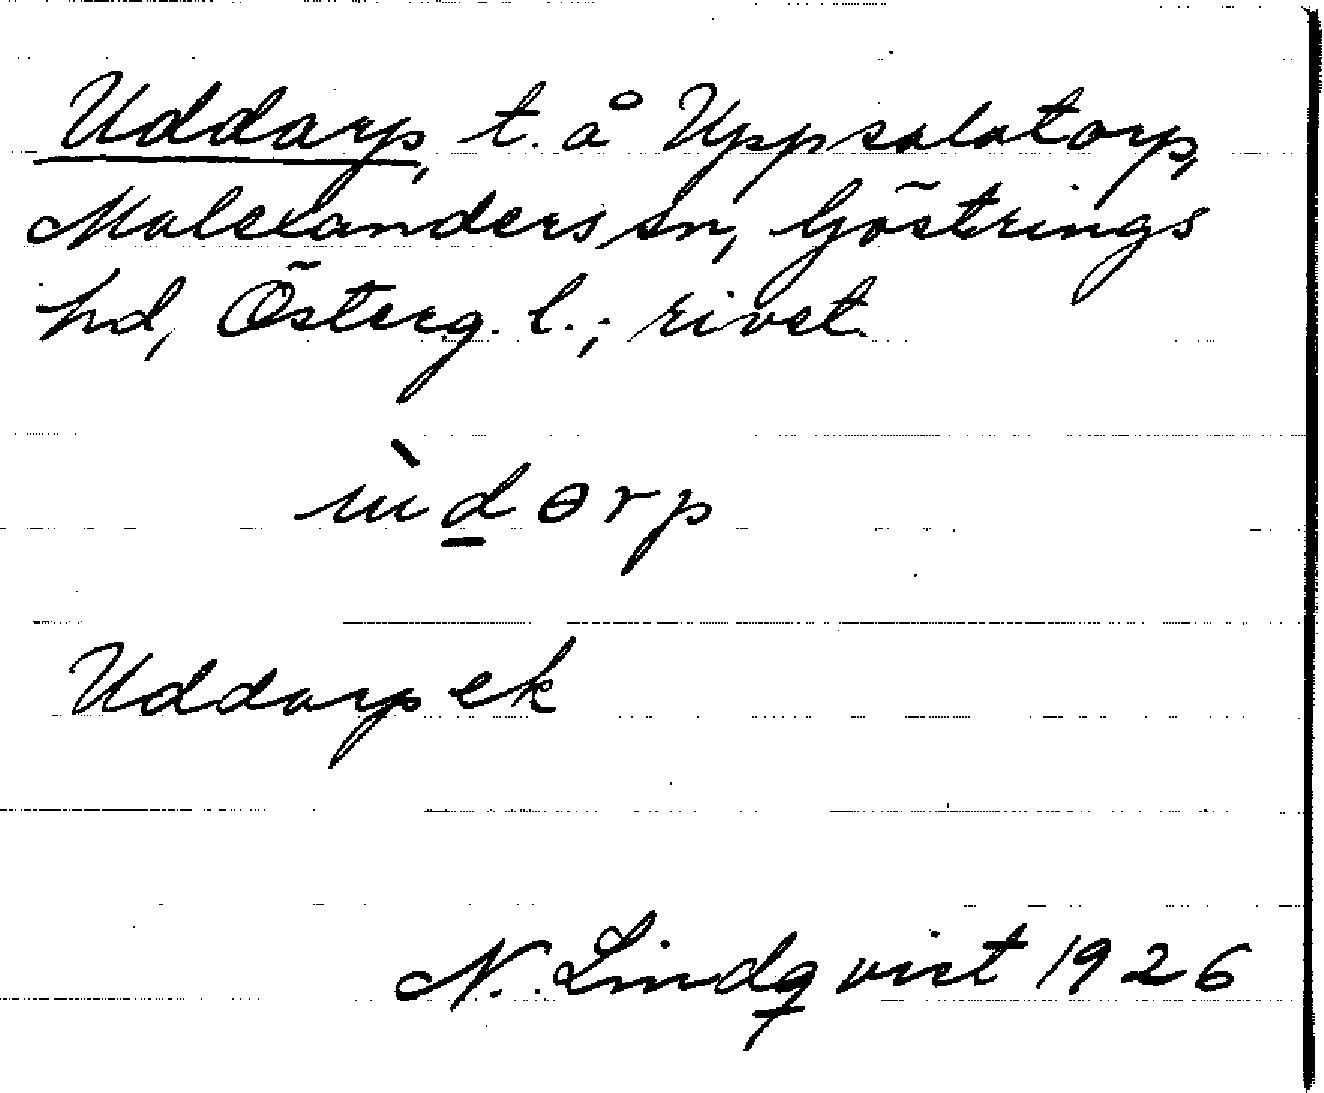 Uddarp, t. å Uppsalatorp,
Malexanders sn, Göstrings
hd, Österg. l.; rivet.
ùdɵrp
Uddarp ek
N. Lindqvist 1926